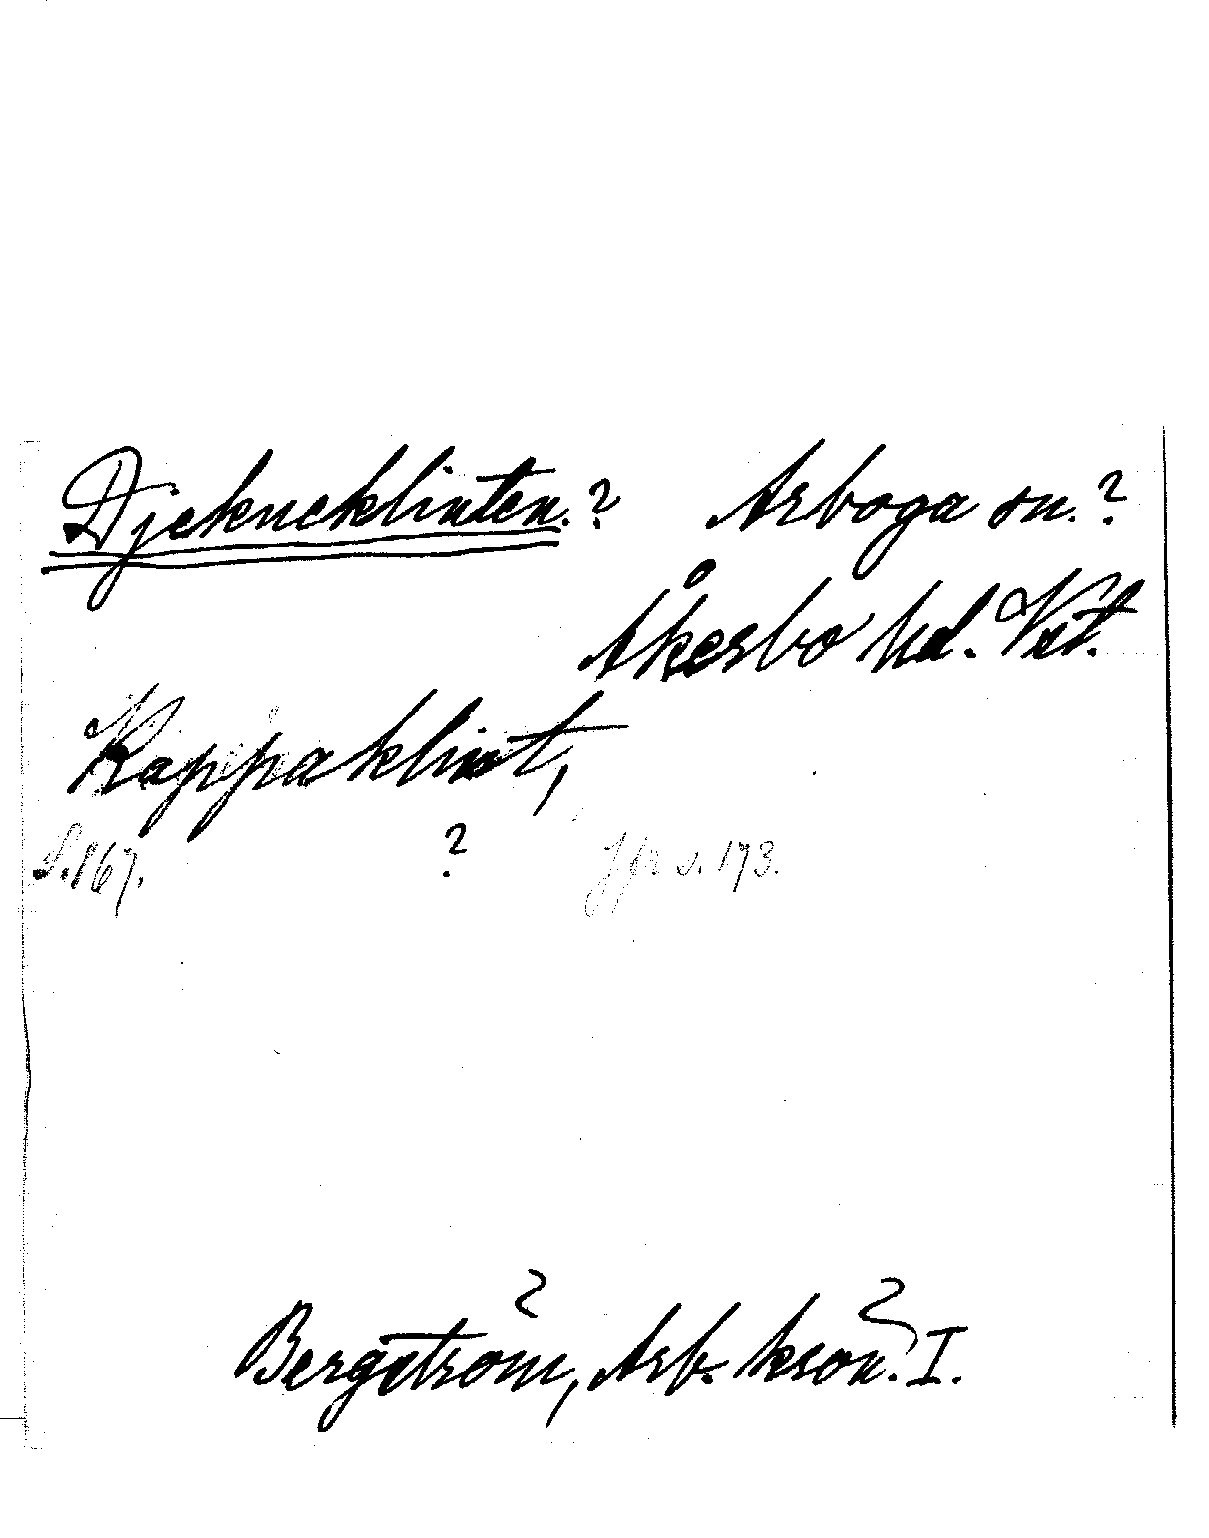 Djekneklinten.? Arboga sn.?
Åkerbo hd. Vstm.
Kappaklint,
S. 167. ? Jfr s. 173.
Bergström, Arb. krön. I.